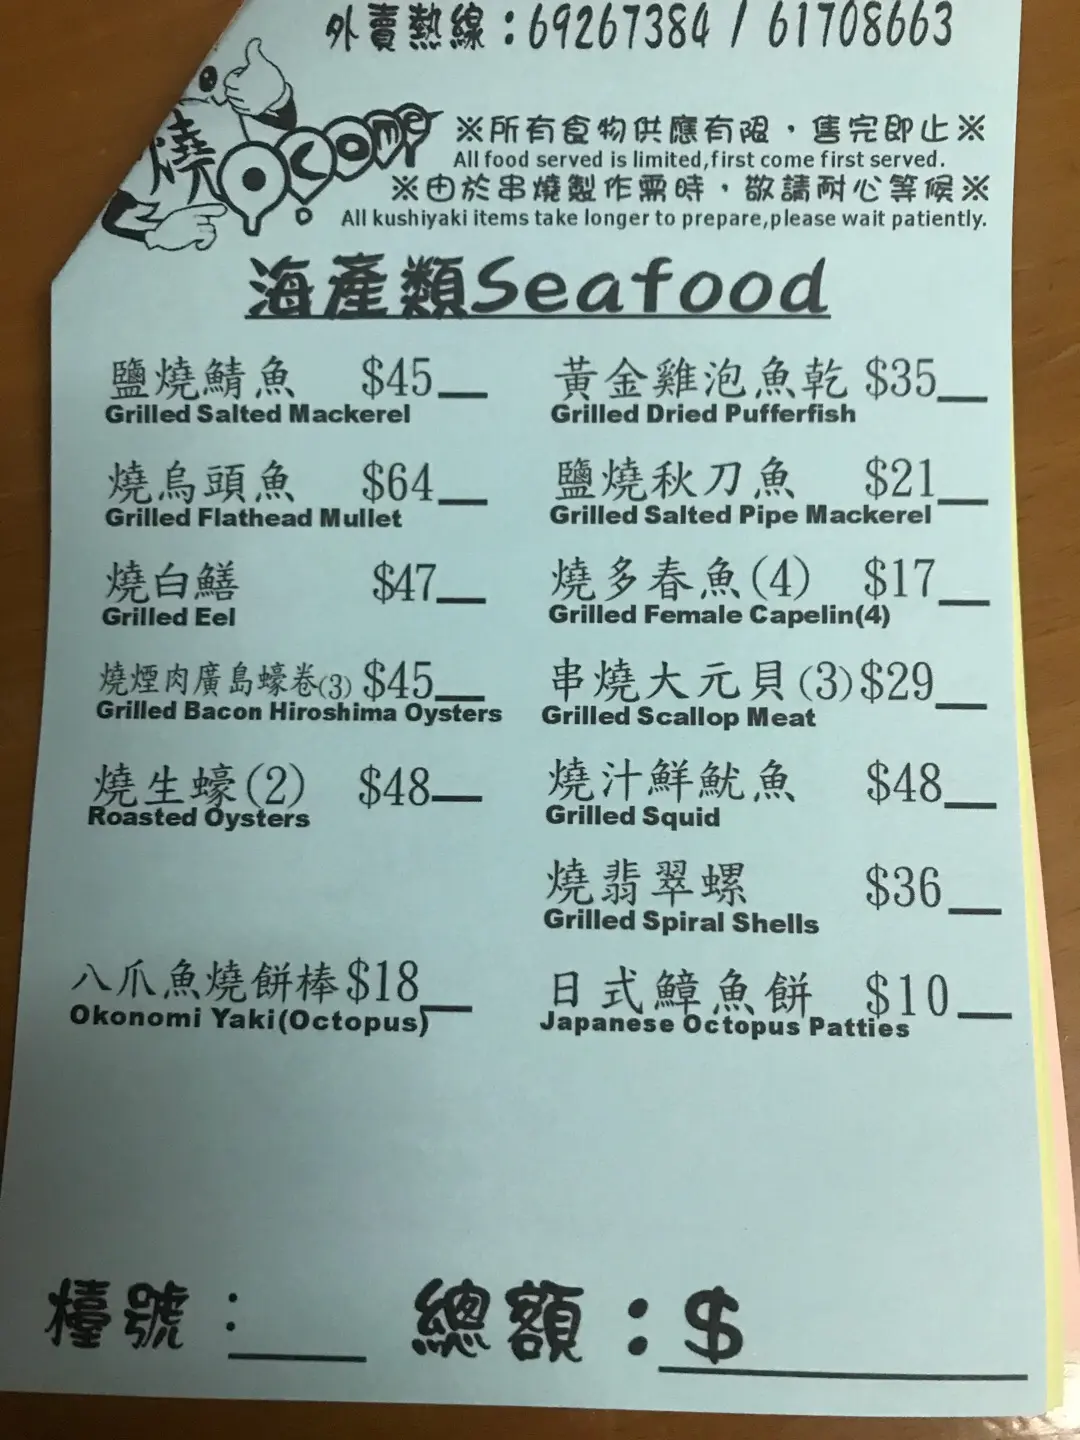 外賣熱線：69267384 / 61708663
燒 Ocome
※所有食物供應有限，售完即止※
All food served is limited,first come first served.
※由於串燒製作需時，敬請耐心等候※
All kushiyaki items take longer to prepare,please wait patiently.
海產類Seafood
鹽燒鯖魚 $45__
Grilled Salted Mackerel
黃金雞泡魚乾 $35__
Grilled Dried Pufferfish
燒烏頭魚 $64__
Grilled Flathead Mullet
鹽燒秋刀魚 $21__
Grilled Salted Pipe Mackerel
燒白鱔 $47__
Grilled Eel
燒多春魚(4) $17__
Grilled Female Capelin(4)
燒煙肉廣島蠔卷(3) $45__
Grilled Bacon Hiroshima Oysters
串燒大元貝(3)$29__
Grilled Scallop Meat
燒生蠔(2) $48__
Roasted Oysters
燒汁鮮魷魚 $48__
Grilled Squid
燒翡翠螺 $36__
Grilled Spiral Shells
八爪魚燒餅棒$18__
Okonomi Yaki(Octopus)
日式鱆魚餅 $10__
Japanese Octopus Patties
檯號：____ 總額：$________